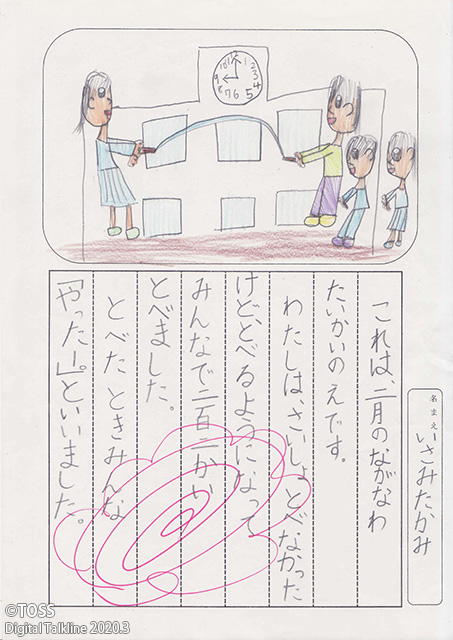 名まえ
いさみたかみ
これは、二月のながなわ
たいかいのえです。
わたしは、さいしょとべなかった
けど、とべるようになって
みんなで二百二かい
とべました。
とべた ときみんな
「やったー」。といいました。
©TOSS
Digital Talkline 2020.3